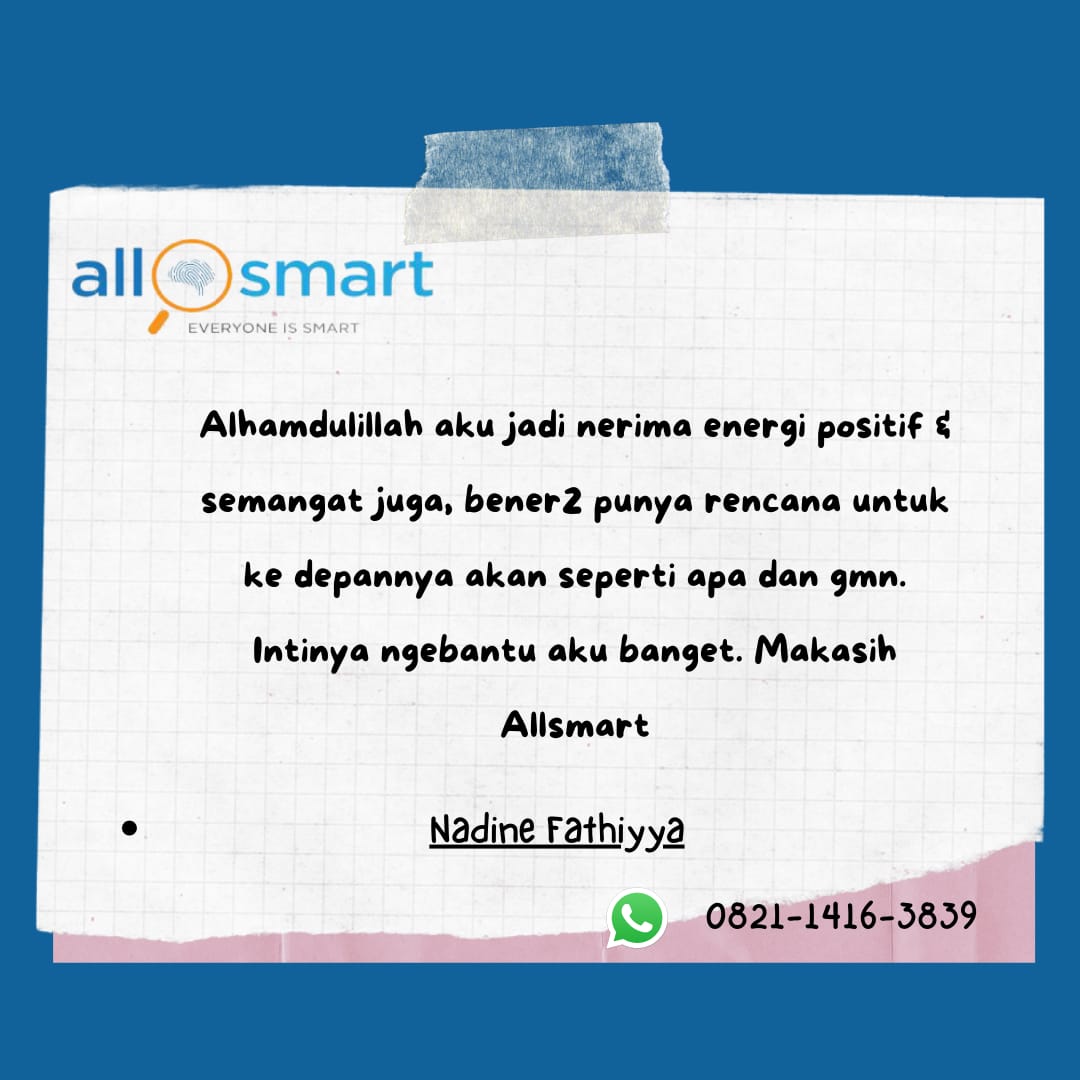 all smart
EVERYONE IS SMART
Alhamdulillah aku jadi nerima energi positif &
semangat juga, bener2 punya rencana untuk
ke depannya akan seperti apa dan gmn.
Intinya ngebantu aku banget. Makasih
Allsmart
• Nadine Fathiyya
0821-1416-3839